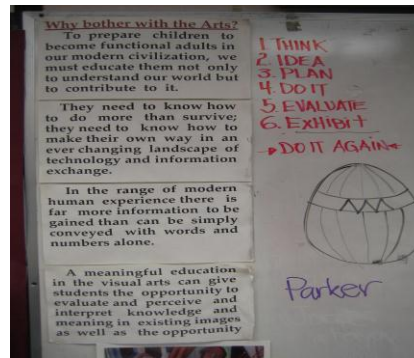 Why bother with the Arts?
To prepare children to
become functional adults in
our modern civilization, we
must educate them not only
to understand our world but
to contribute to it.
They need to know how
to do more than survive;
they need to know how to
make their own way in an
ever changing landscape of
technology and information
exchange.
In the range of modern
human experience there is
far more information to be
gained than can be simply
conveyed with words and
numbers alone.
A meaningful education
in the visual arts can give
students the opportunity to
evaluate and perceive and
interpret knowledge and
meaning in existing images
as well as the opportunity
1. THINK
2. IDEA
3. PLAN
4. DO IT
5. EVALUATE
6. EXHIBIT
DO IT AGAIN
Parker